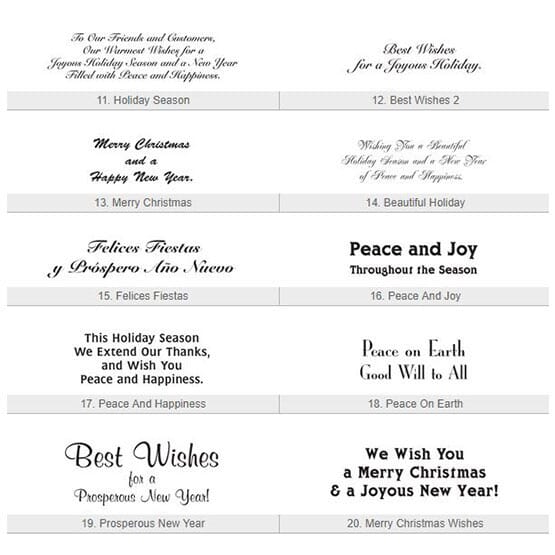 To Our Friends and Customers,
Our Warmest Wishes for a
Joyous Holiday Season and a New Year
Filled with Peace and Happiness.
11. Holiday Season
Best Wishes
for a Joyous Holiday.
12. Best Wishes 2
Merry Christmas
and a
Happy New Year.
13. Merry Christmas
Wishing You a Beautiful
Holiday Season and a New Year
of Peace and Happiness.
14. Beautiful Holiday
Felices Fiestas
y Próspero Año Nuevo
15. Felices Fiestas
Peace and Joy
Throughout the Season
16. Peace And Joy
This Holiday Season
We Extend Our Thanks,
and Wish You
Peace and Happiness.
17. Peace And Happiness
Peace on Earth
Good Will to All
18. Peace On Earth
Best Wishes
for a
Prosperous New Year!
19. Prosperous New Year
We Wish You
a Merry Christmas
& a Joyous New Year!
20. Merry Christmas Wishes